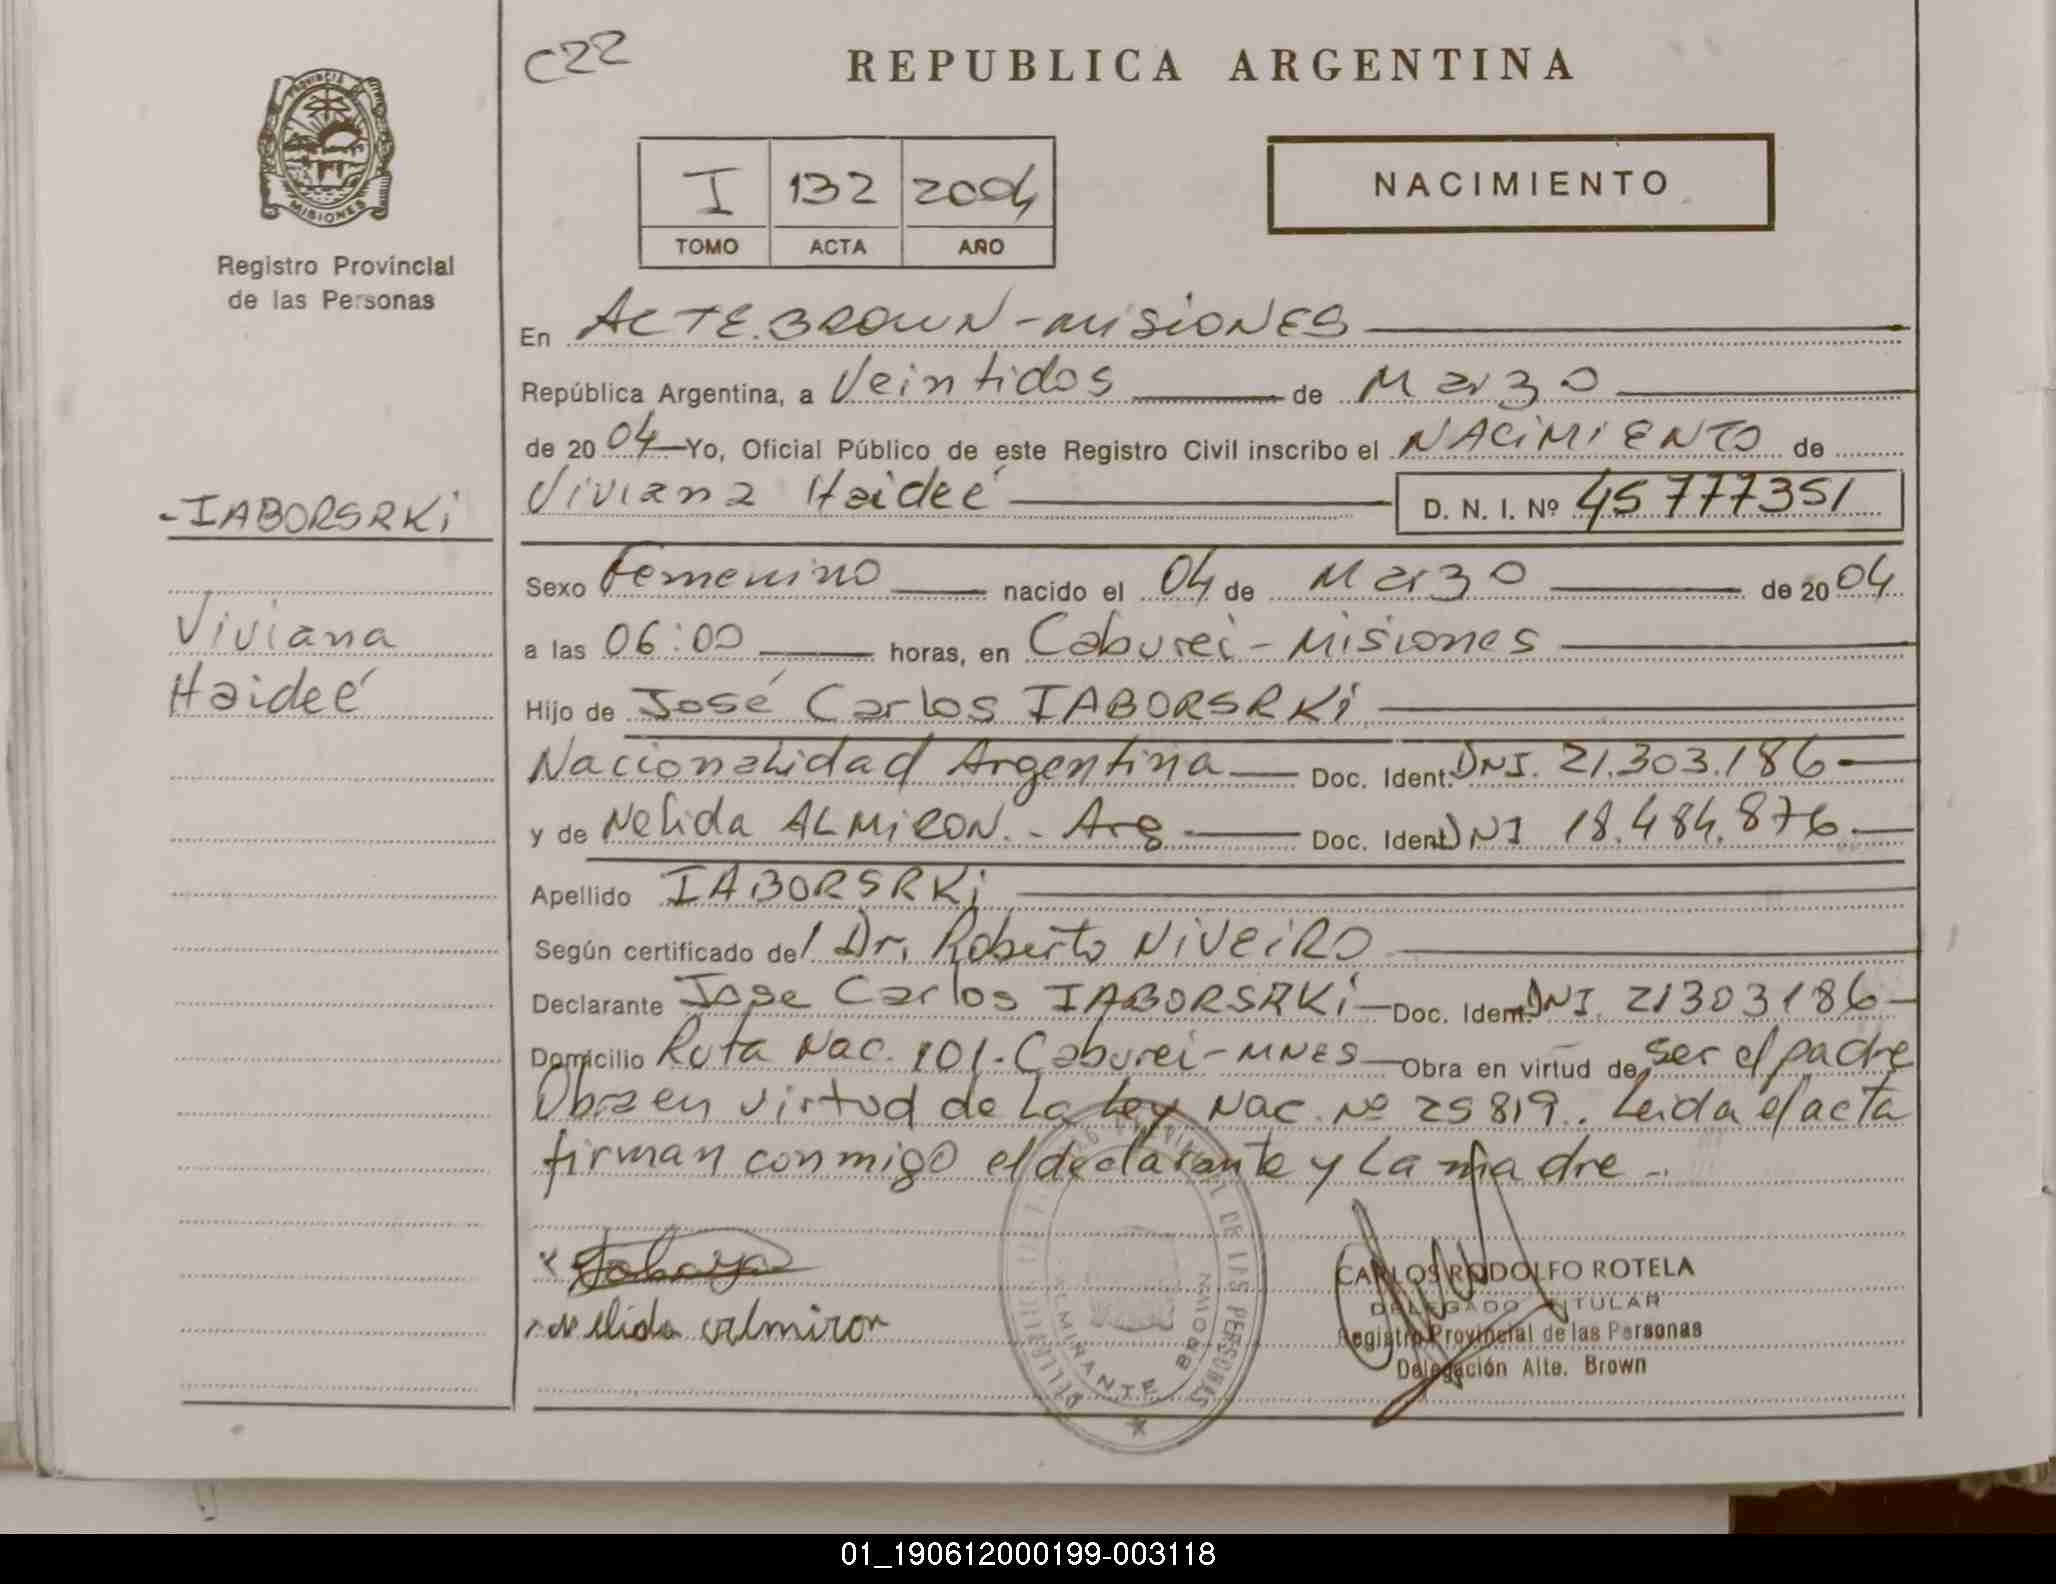 C22
REPUBLICA ARGENTINA
PROVINCIA DE
MISIONES
Registro Provincial
de las Personas
I 132 2004
TOMO ACTA AÑO
NACIMIENTO
En ALTE.BROWN-MISIONES
República Argentina, a Veintidos de Marzo
de 20 04 Yo, Oficial Público de este Registro Civil inscribo el NACIMIENTO de
Viviana Haideé D. N. I. Nº 45777351
-IABORSRKi
Viviana
Haideé
Sexo Femenino nacido el 04 de Marzo de 20 04
a las 06:00 horas, en Caburei-Misiones
Hijo de José Carlos IABORSRKi
Nacionalidad Argentina Doc. Ident. DNI. 21.303.186
y de Nelida ALMIRON.- Arg Doc. Ident DNI 18.484.876
Apellido IABORSRKi
Según certificado del Dr. Roberto NIVEIRO
Declarante Jose Carlos IABORSRKi Doc. Ident. DNI. 21303186
Domicilio Ruta Nac. 101-Caburei-MNES Obra en virtud de ser el padre
Obra en virtud de La Ley Nac. Nº 25819. Leida el acta
firman conmigo el declarante y La madre.-
Nelida almiron
CARLOS RODOLFO ROTELA
DELEGADO TITULAR
Registro Provincial de las Personas
Delegación Alte. Brown
DE LAS PERSONAS
ALMIRANTE BROWN
01_190612000199-003118